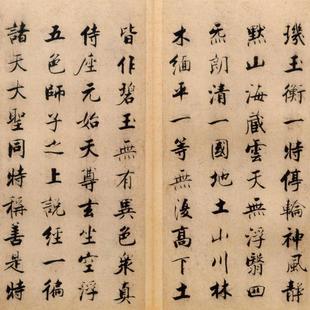 璣玉衡一時停輪神風靜
默山海藏雲天無浮翳四
炁朗清一國地土山川林
木緬平一等無復高下土
皆作碧玉無有異色衆真
侍座元始天尊玄坐空浮
五色師子之上說經一徧
諸天大聖同時稱善是時